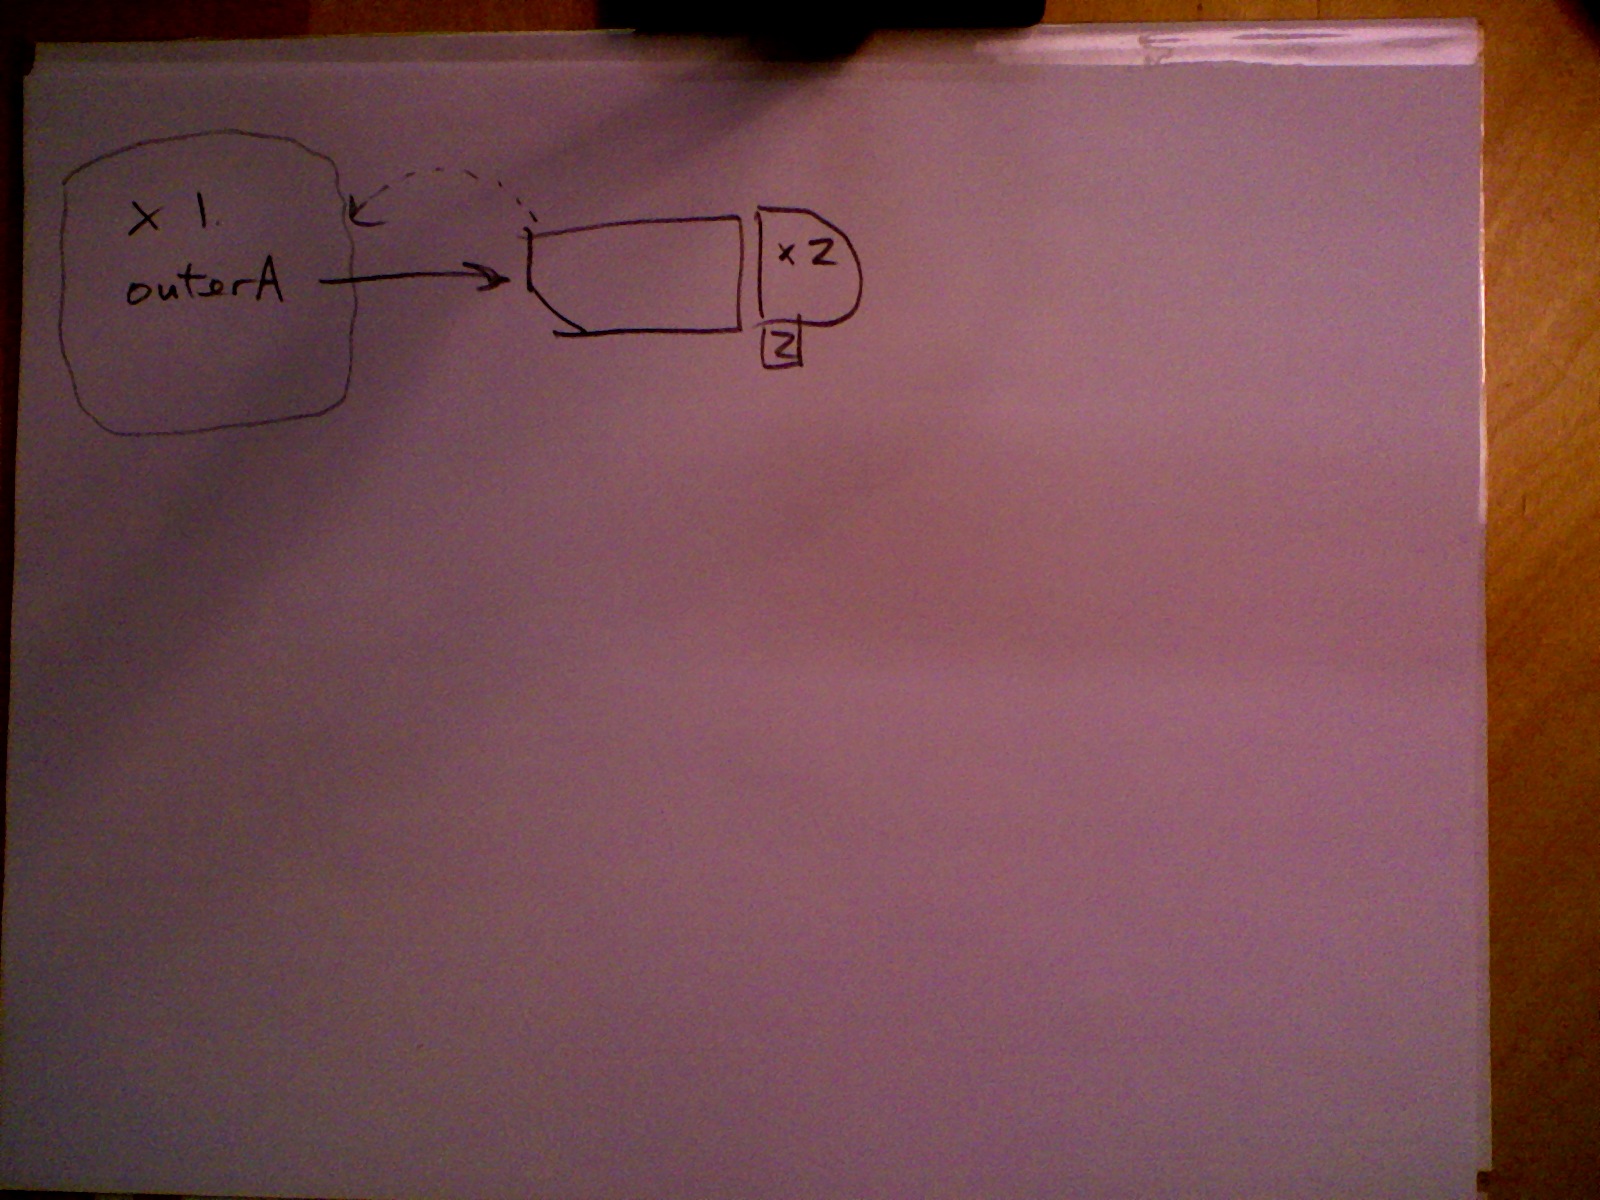 x 1.
outerA
x 2
2